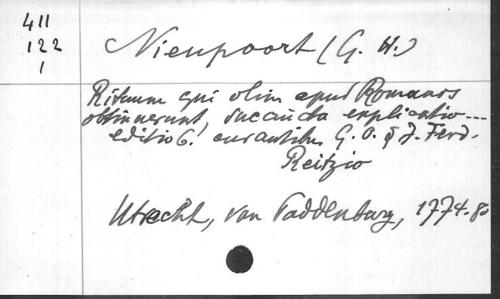 411
122
1
Nieupoort (G. H.)
Rituum qui olim apud Romanos
obtinuerunt, succincta explicatio...
editio 6! curantibus G. O. & J. Ferd.
Reitzio
Utrecht, van Paddenburg, 1774. 8o